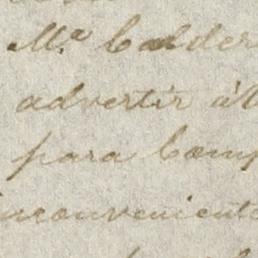 M.ª Calder
advertir á V
para Comp
inconveniente